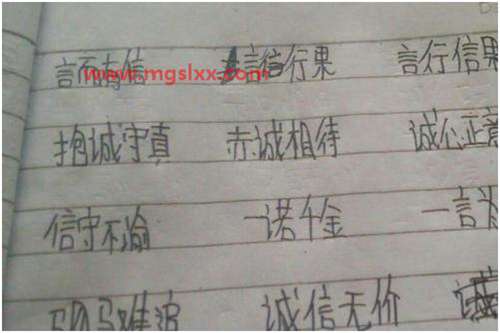 言而有信 言信行果 言行信果
www.mgslxx.com
抱诚守真 赤诚相待 诚心正意
信守不渝 一诺千金 一言
驷马难追 诚信无价